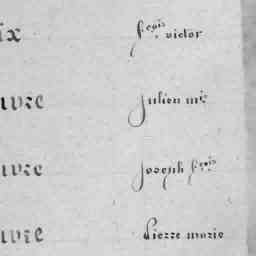 ix fçois victor
uvre Julien mie
uvre Joseph fçois
uvre Pierre marie